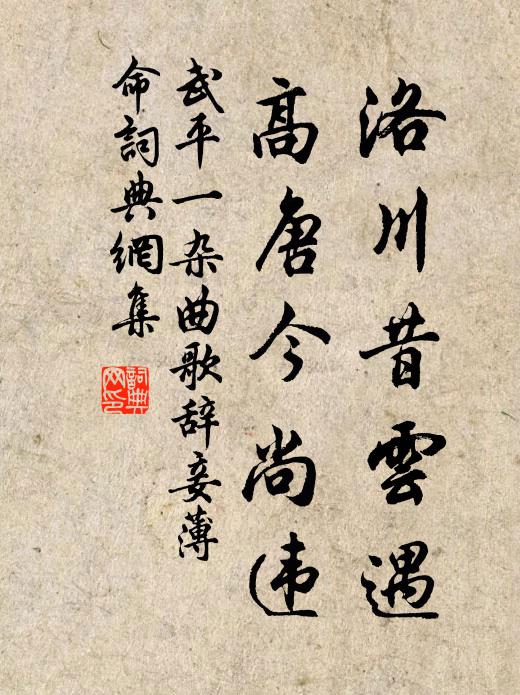 洛川昔雲遇
高唐今尚违
武平一杂曲歌辞妾薄
命詞典網集
詞典
网印